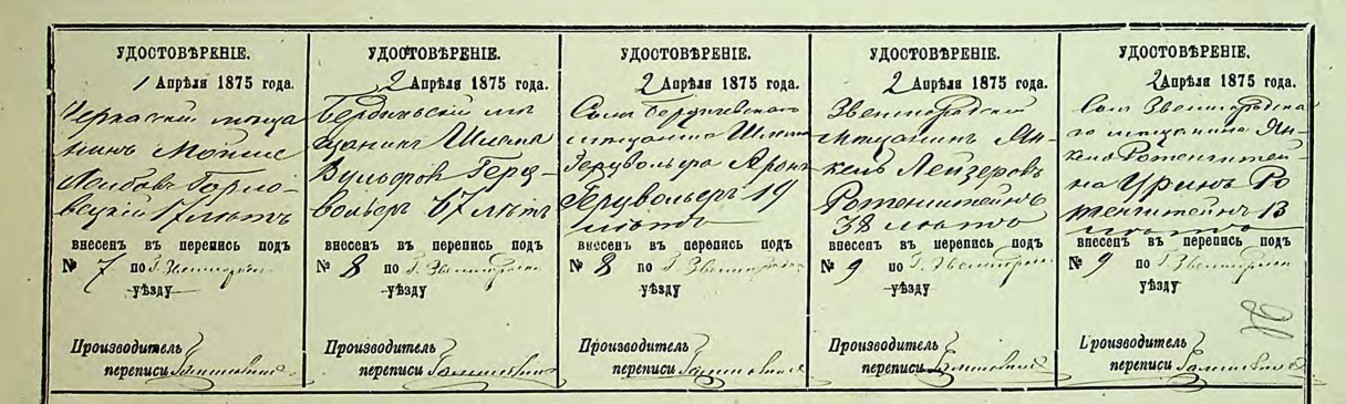 УДОСТОВѢРЕНІЕ.
1 Апрѣля 1875 года.
Черкаскій мѣща
нинъ Мойше
Лейбовъ Горло-
вецкій 17 лѣтъ
внесенъ въ перепись подъ
№ 7 по Г. Звенигородк
уѣзду
Производитель
переписи
УДОСТОВѢРЕНІЕ.
2 Апрѣля 1875 года.
Бердичевскій мѣ
щанинъ Шлема
Вульфовъ Герц-
вольфъ 67 лѣтъ
внесенъ въ перепись подъ
№ 8 по Г. Звенигородк
уѣзду
Производитель
переписи
УДОСТОВѢРЕНІЕ.
2 Апрѣля 1875 года.
Сынъ Бердичевскаго
мѣщанина Шлемы
Герцвольфа Аронъ
Герцвольфъ 19
лѣтъ
внесенъ въ перепись подъ
№ 8 по Г. Звенигородк
уѣзду
Производитель
переписи
УДОСТОВѢРЕНІЕ.
2 Апрѣля 1875 года.
Звенигородскій
мѣщанинъ Ян-
кель Лейзеровъ
Ротенштейнъ
38 лѣтъ
внесенъ въ перепись подъ
№ 9 по Г. Звенигородк
уѣзду
Производитель
переписи
УДОСТОВѢРЕНІЕ.
2 Апрѣля 1875 года.
Сынъ Звенигородска
го мѣщанина Ян-
келя Ротенштей-
на Уринъ Ро
тенштейнъ 13
лѣтъ
внесенъ въ перепись подъ
№ 9 по Г. Звенигородк
уѣзду
Производитель
переписи